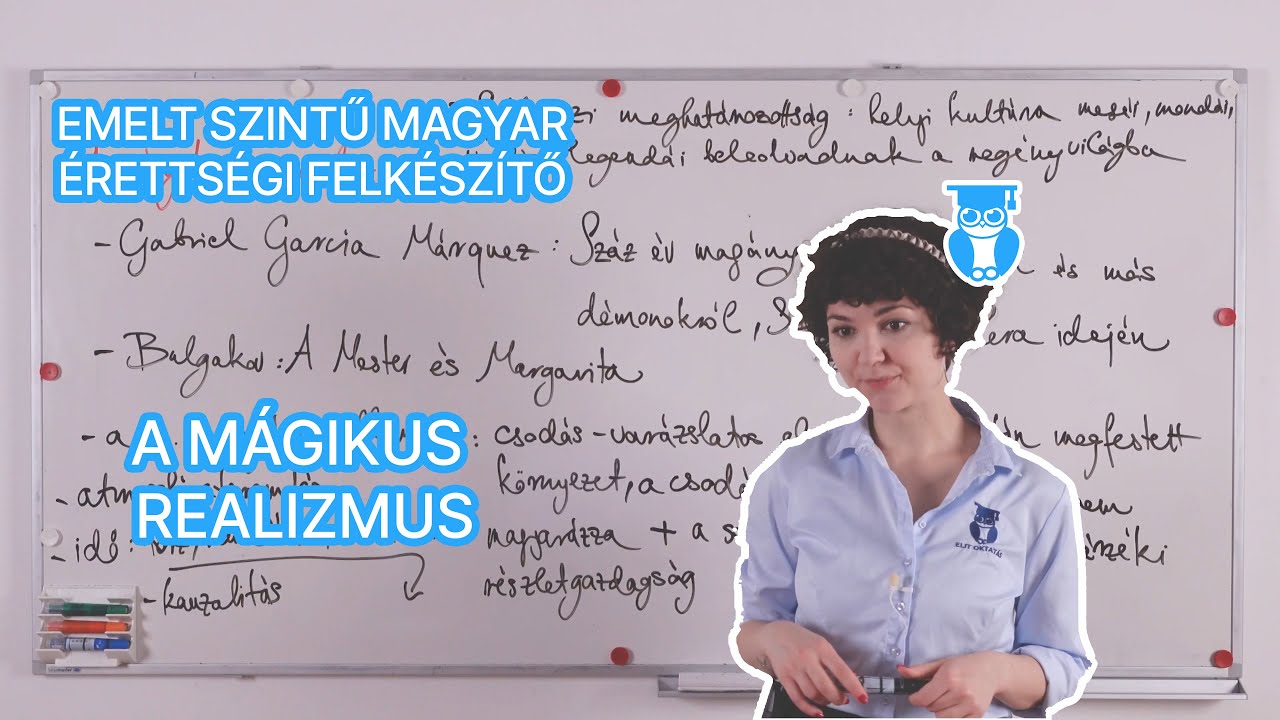 EMELT SZINTŰ MAGYAR
ÉRETTSÉGI FELKÉSZÍTŐ
meghatározottság: helyi kultúra meséi, mondái,
legendái beleolvadnak a regényvilágba
- Gabriel Garcia Márquez: Száz év magány és más
démonokról, idején
- Bulgakov: A Mester és Margarita
A MÁGIKUS
REALIZMUS
- a : csodás-varázslatos megfestett
környezet, a
- idő: magyarázza + a
részletgazdagság
- kauzalitás
ELIT OKTATÁS